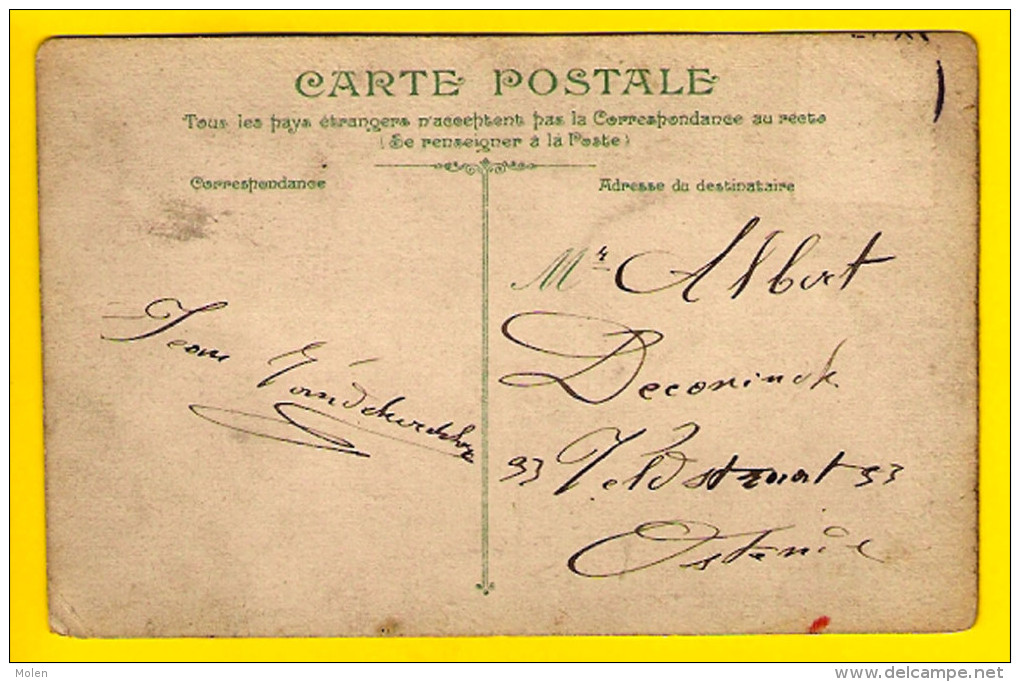 CARTE POSTALE
Tous les pays étrangers n'acceptent pas la Correspondance au recto
(Se renseigner à la Poste)
Correspondance
Adresse du destinataire
Jean
Mr Albert
Deconinck
93 Veldstraat 93
Ostende
Molen
www.delcampe.net